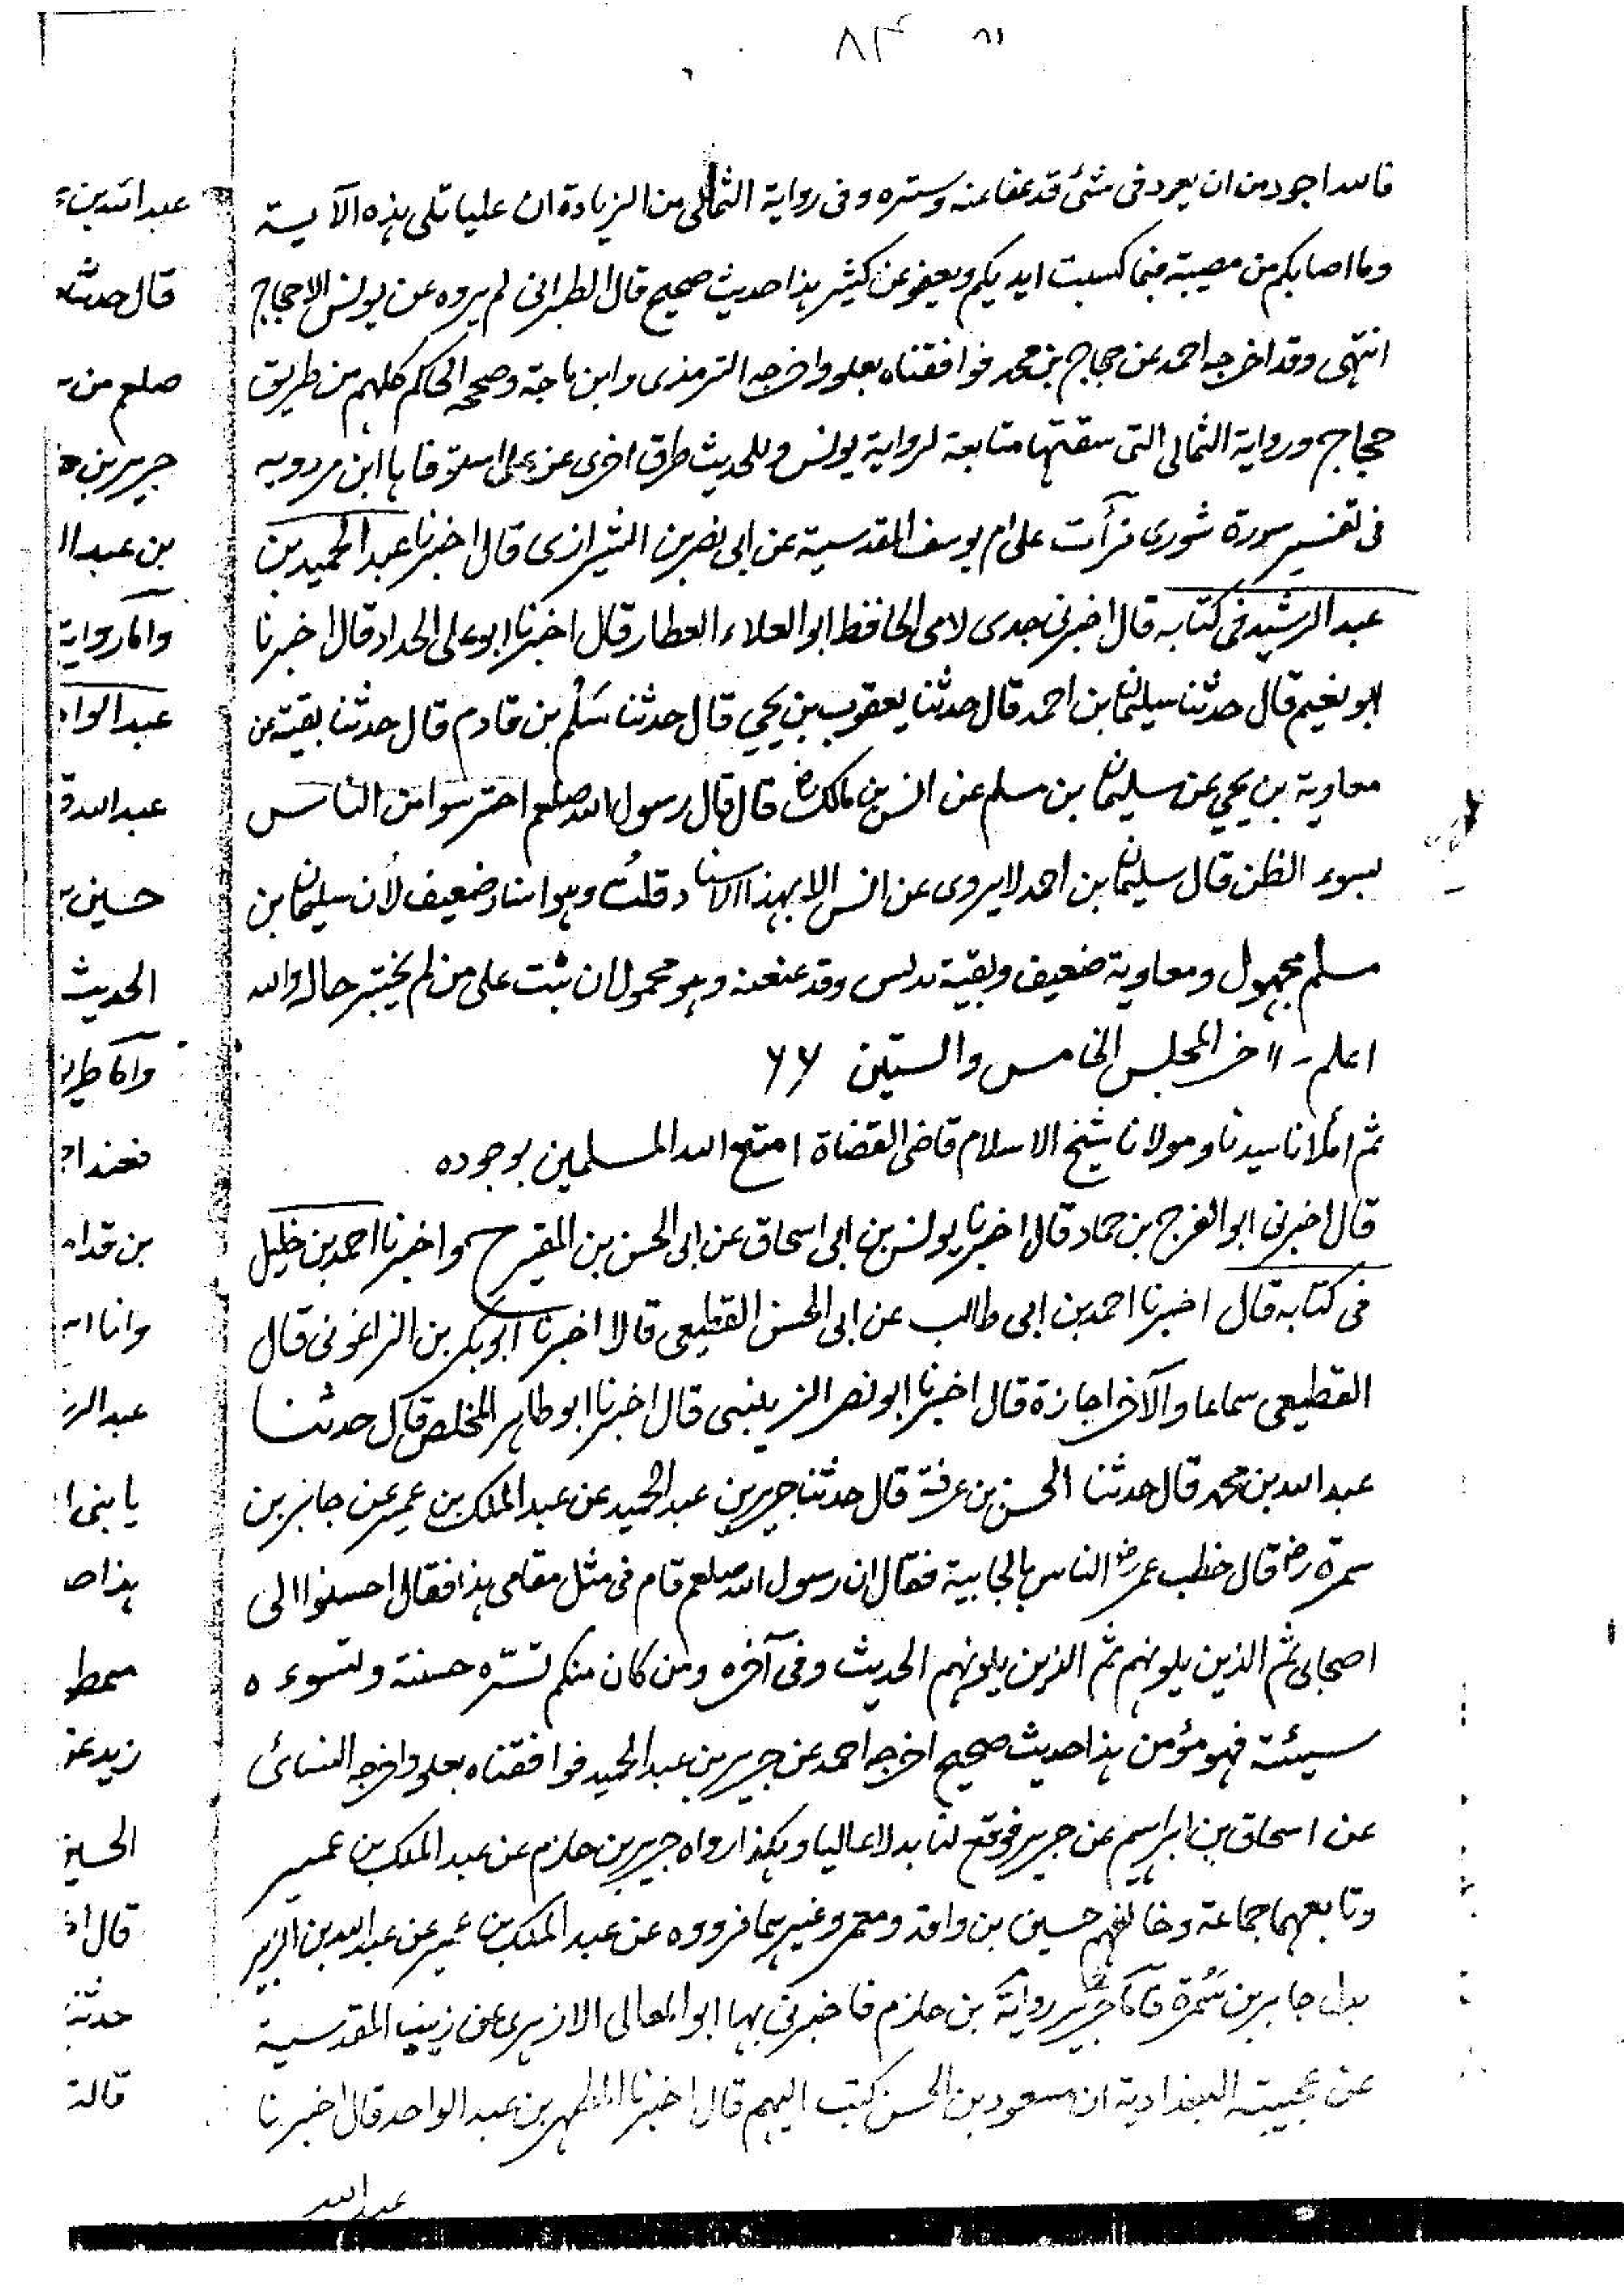 ٨٤ ٨١
فالله اجود من ان يعود فى شئ قد عفا عنه وستره وفى رواية الثمالى من الزيادة ان عليا تلى هذه الآية
وما اصابكم من مصيبة فبما كسبت ايديكم ويعفو عن كثير هذا حديث صحيح قال الطبرانى لم يروه عن يونس الا حجاج
انتهى وقد اخرجه احمد عن حجاج بن محمد فوافقناه بعلو واخرجه الترمذى وابن ماجة وصححه الحاكم كلهم من طريق
حجاج ورواية الثمالى التى سقتها متابعة لرواية يونس وللحديث طرق اخرى عن على استوفاها ابن مردويه
فى تفسير سورة شورى قرأت على ام يوسف المقدسية عن ابى نصر بن الشيرازى قال اخبرنا عبد الحميد بن
عبد الرشيد فى كتابه قال اخبرنى جدى لامى الحافظ ابو العلاء العطار قال اخبرنا ابو على الحداد قال اخبرنا
ابو نعيم قال حدثنا سليمان بن احمد قال حدثنا يعقوب بن يحيي قال حدثنا سَلْم بن قادم قال حدثنا بقية عن
معاوية بن يحيي عن سليمان بن مسلم عن انس بن مالك رض قال قال رسول الله صلعم احترسوا من الناس
بسوء الظن قال سليمان بن احمد لا يروى عن انس الا بهذا الاسناد قلتُ وهو اسناد ضعيف لأن سليمان بن
مسلم مجهول ومعاوية ضعيف وبقية مدلس وقد عنعنه وهو محمول ان ثبت على من لم يختبر حاله والله
اعلم - آخر المجلس الخامس والستين ٦٦
ثم أملانا سيدنا ومولانا شيخ الاسلام قاضى القضاة امتع الله المسلمين بوجوده
قال اخبرنى ابو الفرج بن حماد قال اخبرنا يونس بن ابى اسحاق عن ابى الحسن بن المقير ح واخبرنا احمد بن خليل
فى كتابه قال اخبرنا احمد بن ابى طالب عن ابى الحسن القطيعى قالا اخبرنا ابو بكر بن الزاغونى قال
القطيعى سماعا والآخر اجازة قال اخبرنا ابو نصر الزينبى قال اخبرنا ابو طاهر المخلص قال حدثنا
عبد الله بن محمد قال حدثنا الحسن بن عرفة قال حدثنا جرير بن عبد الحميد عن عبد الملك بن عمير عن جابر بن
سمرة رض قال خطب عمر رض الناس بالجابية فقال ان رسول الله صلعم قام فى مثل مقامى هذا فقال احسنوا الى
اصحابى ثم الذين يلونهم ثم الذين يلونهم الحديث وفى آخره ومن كان منكم تسرّه حسنة وتسوءه
سيئة فهو مؤمن هذا حديث صحيح اخرجه احمد عن جرير بن عبد الحميد فوافقناه بعلو واخرجه النسائى
عن اسحاق بن ابراهيم عن جرير فوقع لنا بدلا عاليا وهكذا رواه جرير بن حازم عن عبد الملك بن عمير
وتابعهما جماعة وخالفهم حسين بن واقد ومعمر وغيرهما فرووه عن عبد الملك بن عمير عن عبد الله بن الزبير
بدل جابر بن سَمُرة فاما رواية جرير بن حازم فاخبرنى بها ابو المعالى الازهرى عن زينب المقدسية
عن عجيبة البغدادية ان مسعود بن الحسن كتب اليهم قال اخبرنا المطهر بن عبد الواحد قال اخبرنا
عبد الله
عبد الله بن
قال حدثنا
صلعم من
جرير بن
بن عبد ا
واما رواية
عبد الوا
عبد الله
حسين
الحديث
واما
فعند
بن قدا
وانا
عبد الر
يا بنى
هذا
زيد
الحسين
قال
حدثنا
قالت